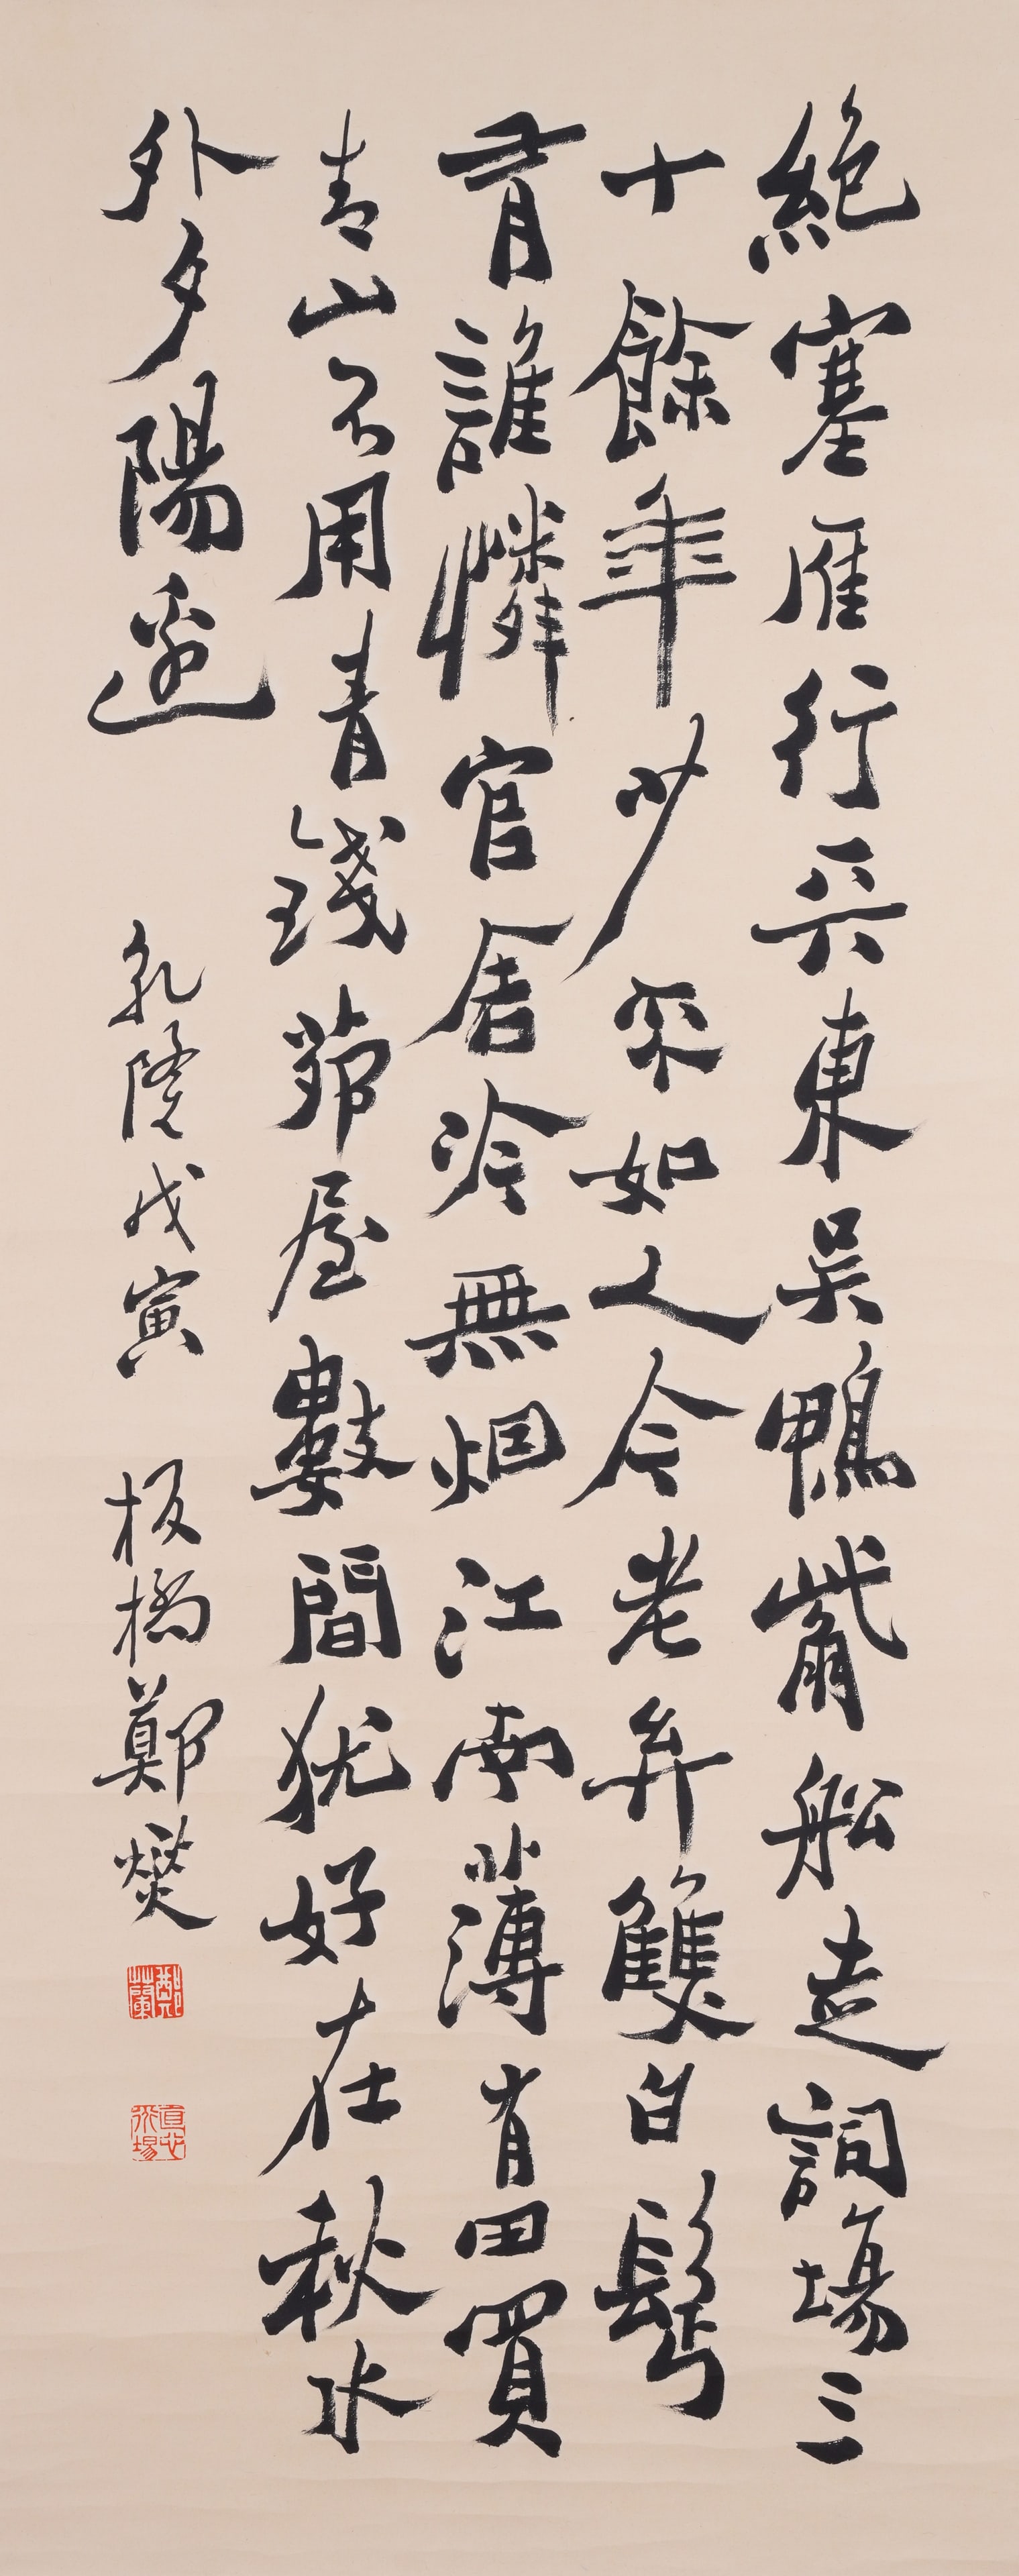 絶塞雁行兲東吳鴨觜舩走詞場三
十餘年少不如人今老矣雙白鬢
有誰憐官舍冷無烟江南薄有田買
青山不用青錢茆屋數間猶好在秋水
外夕陽邊 乾隆戊寅 板橋鄭燮
鄭蘭
直心道場